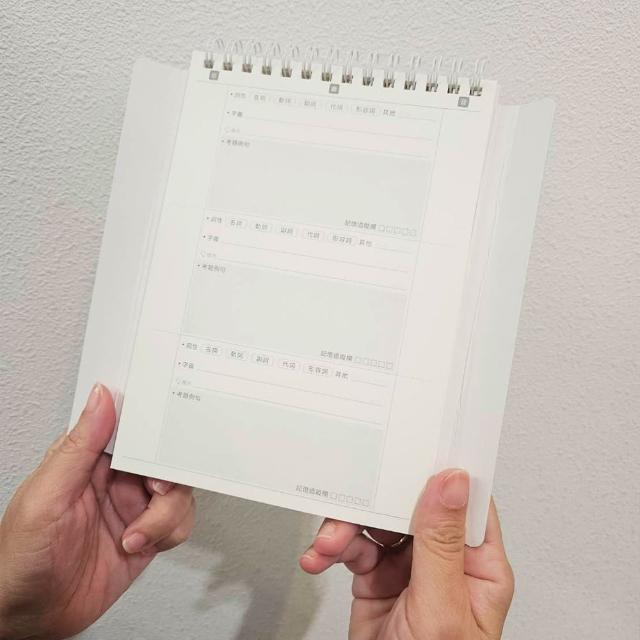 • 詞性 名詞 動詞 副詞 代詞 形容詞 其他
• 字義
• 考題例句
記憶追蹤欄 □□□□□
• 詞性 名詞 動詞 副詞 代詞 形容詞 其他
• 字義
• 考題例句
記憶追蹤欄 □□□□□
• 詞性 名詞 動詞 副詞 代詞 形容詞 其他
• 字義
• 考題例句
記憶追蹤欄 □□□□□